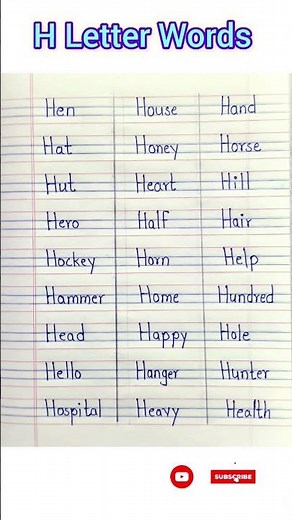 H Letter Words
Hen House Hand
Hat Honey Horse
Hut Heart Hill
Hero Half Hair
Hockey Horn Help
Hammer Home Hundred
Head Happy Hole
Hello Hanger Hunter
Hospital Heavy Health
SUBSCRIBE